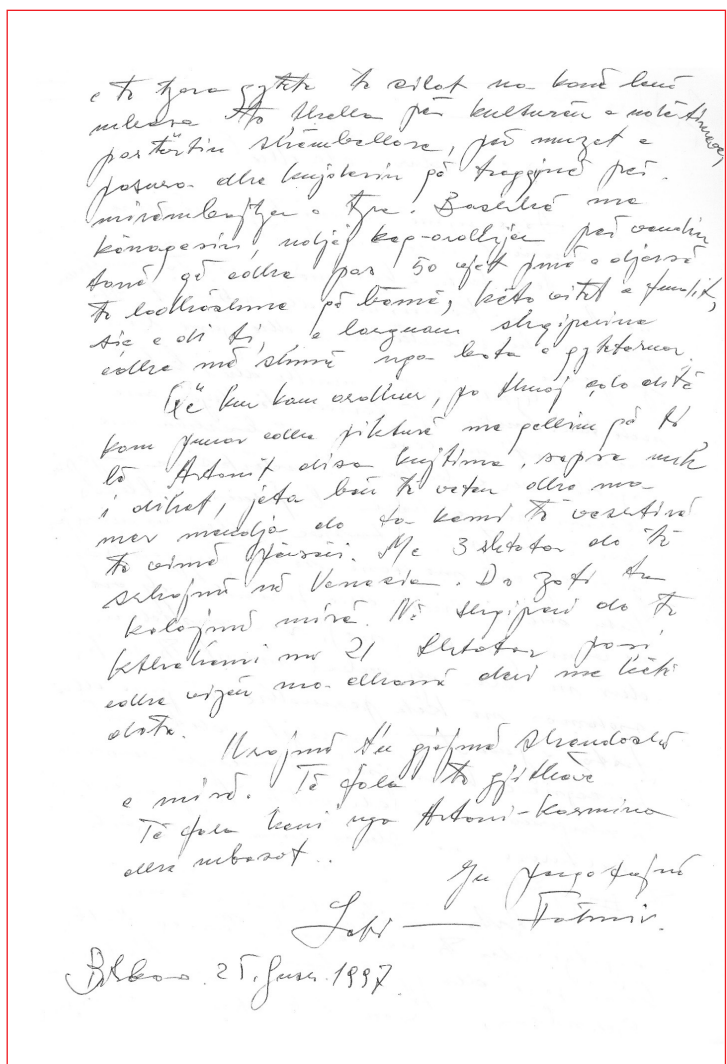 e të tjera qytete të cilat na kanë lënë
mbresa të thella për kulturën e
pastërtinë shëmbellore, për muzet e
pasura dhe kujdesin që tregojnë për
mirëmbajtjen e tyre. Bashkë me
kënaqësinë, ndjej keqardhje për vendin
tonë që edhe pas 50 vjet punë e djersë
të lodhshme që bëmë, këto vitet e fundit,
siç e di ti, e larguam shqipërinë
edhe më shumë nga bota e qytetëruar.
Që kur kam ardhur, po thuaj çdo ditë
kam punuar edhe pikturë me qëllim që t'i
lë Artonit disa kujtime, sepse nuk
i dihet, jeta bën të veten dhe me
mer mendja do ta kemi të vështirë
të vimë përsëri. Me 3 shtator do të
shkojmë në Venezia. Do zoti ta
kalojmë mirë. Në shqipëri do të
kthehemi me 21 Shtator pasi
edhe vizën na dhanë deri me këtë
datë.
Urojmë t'u gjejmë shëndoshë
e mirë. Të fala të gjithëve
Të fala keni nga Artoni-Kosmina
dhe mbesat..
Ju përqafojmë
Fatmir.
25. 1997